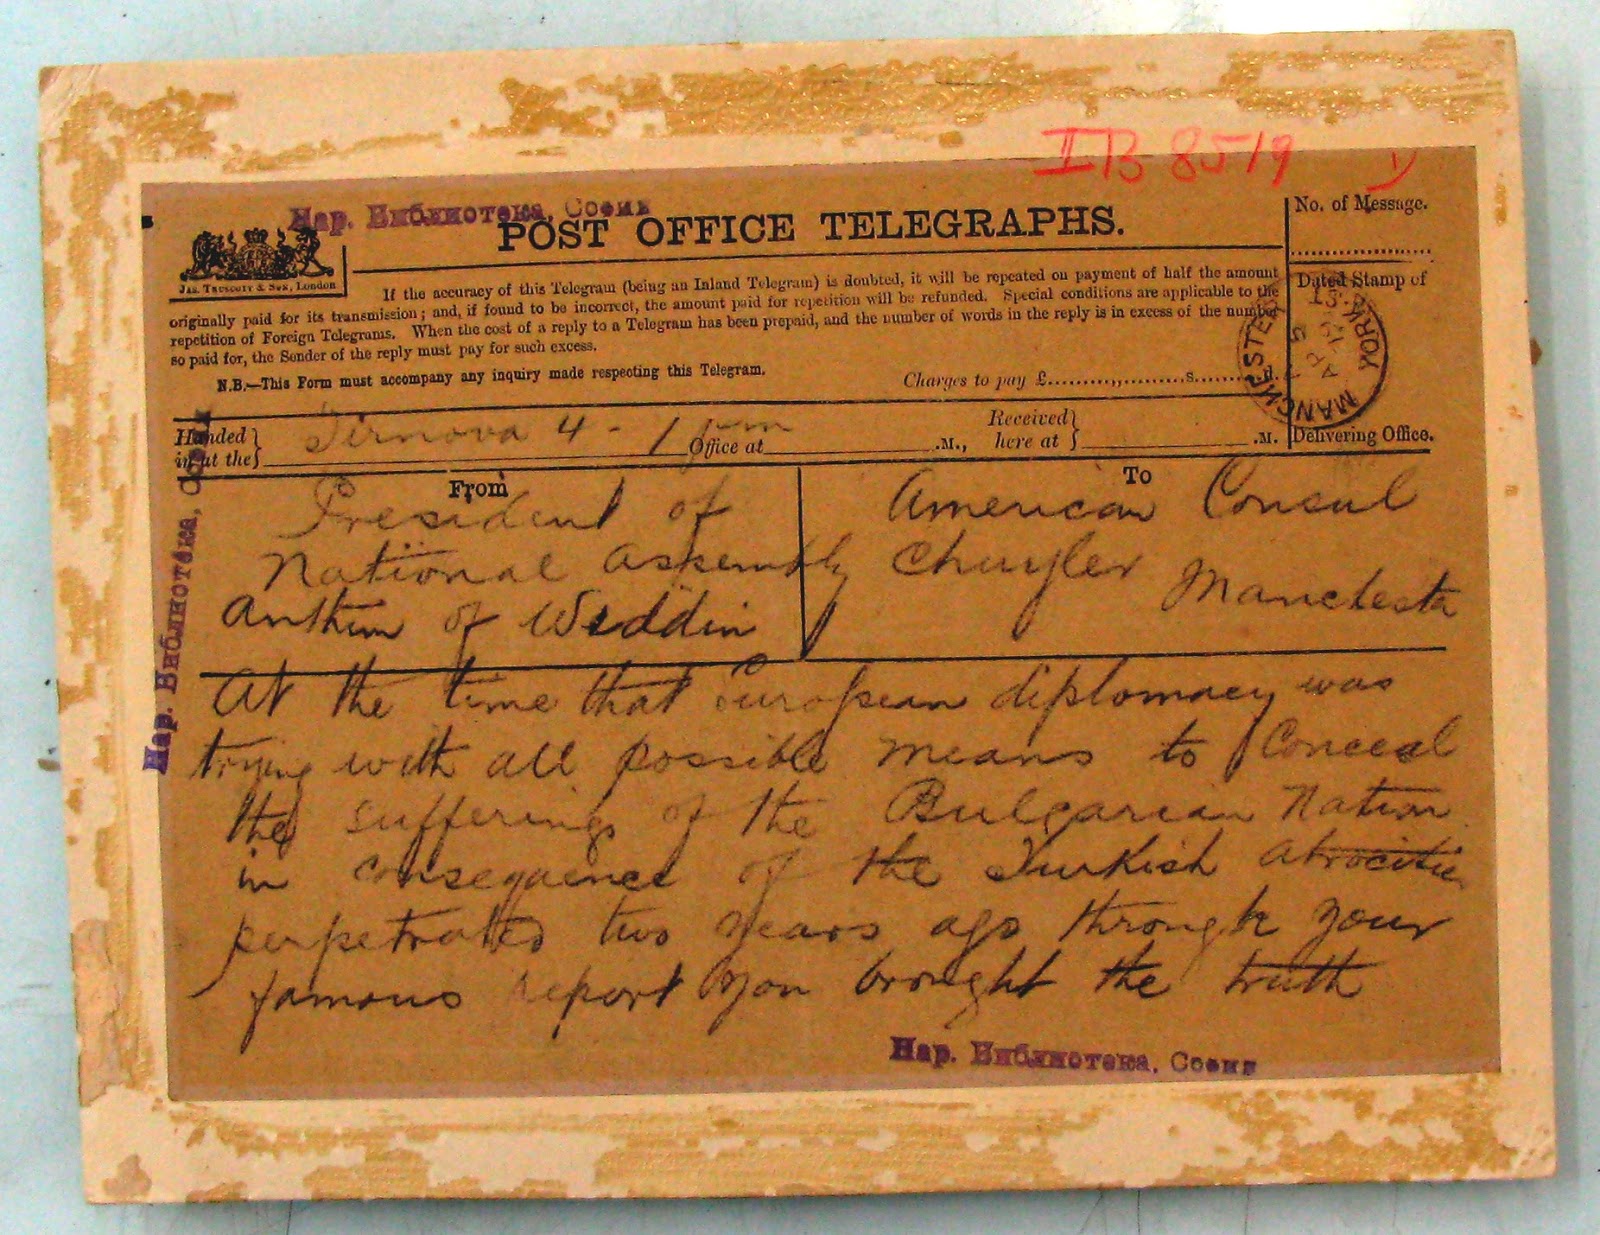 IB 8519 1)
Нар. Библиотека, София
POST OFFICE TELEGRAPHS.
No. of Message.
Jas. Truscott & Son, London
If the accuracy of this Telegram (being an Inland Telegram) is doubted, it will be repeated on payment of half the amount
originally paid for its transmission; and, if found to be incorrect, the amount paid for repetition will be refunded. Special conditions are applicable to the
repetition of Foreign Telegrams. When the cost of a reply to a Telegram has been prepaid, and the number of words in the reply is in excess of the number
so paid for, the Sender of the reply must pay for such excess.
N.B.—This Form must accompany any inquiry made respecting this Telegram.
Charges to pay £ s. d.
Dated Stamp of
MANCHESTER
YORK ST
AP 5
Delivering Office.
Handed in at the Tirnova 4 - 1 pm Office at .M., Received here at .M.
From
President of
National assembly
Anthim of Widdin
To
American Consul
Chuyler Manchester
At the time that European diplomacy was
trying with all possible means to Conceal
the sufferings of the Bulgarian Nation
in consequence of the Turkish atrocities
perpetrated two years ago through your
famous report you brought the truth
Нар. Библиотека, София
Нар. Библиотека, София